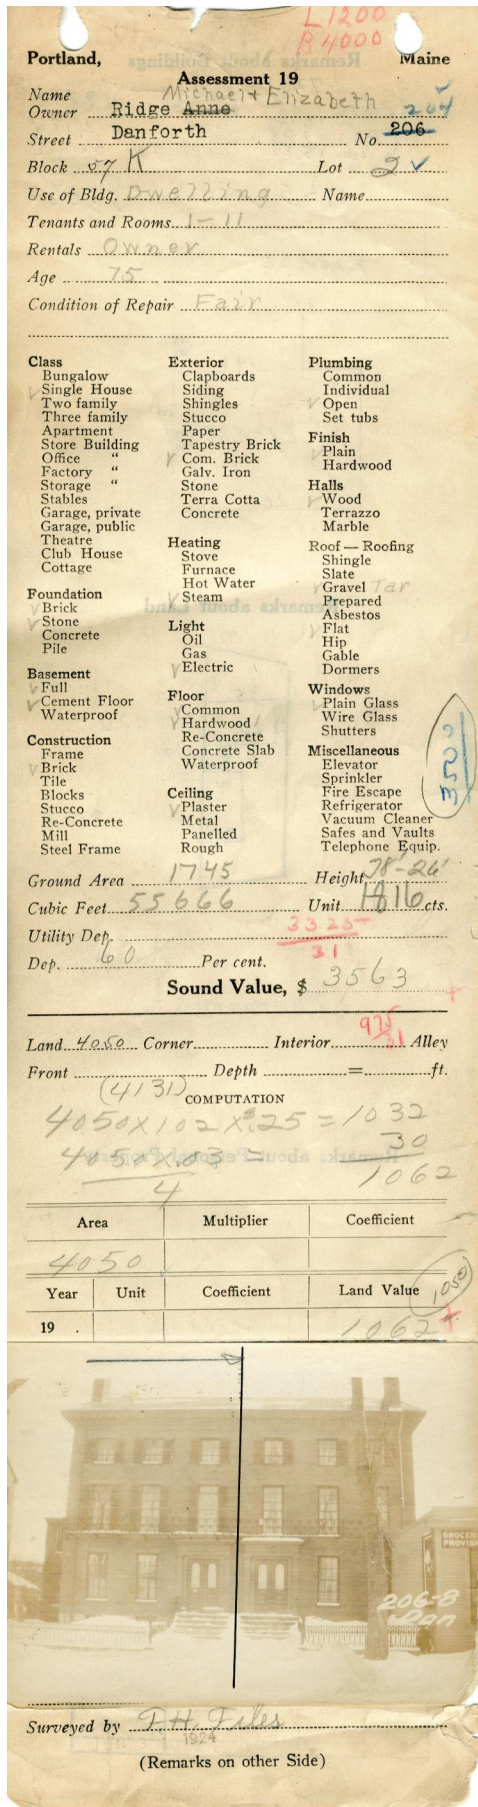 L1200
B4000
Portland, Maine
Assessment 19
Michael + Elizabeth
Name
Owner Ridge Anne 204
Street Danforth No. 206
Block 57 K Lot 2 ✓
Use of Bldg. Dwelling Name
Tenants and Rooms 1-11
Rentals Owner
Age 75
Condition of Repair Fair
Class
Bungalow
✓ Single House
Two family
Three family
Apartment
Store Building
Office "
Factory "
Storage "
Stables
Garage, private
Garage, public
Theatre
Club House
Cottage
Foundation
✓ Brick
✓ Stone
Concrete
Pile
Basement
✓ Full
✓ Cement Floor
Waterproof
Construction
Frame
✓ Brick
Tile
Blocks
Stucco
Re-Concrete
Mill
Steel Frame
Exterior
Clapboards
Siding
Shingles
Stucco
Paper
Tapestry Brick
✓ Com. Brick
Galv. Iron
Stone
Terra Cotta
Concrete
Heating
Stove
Furnace
Hot Water
✓ Steam
Light
Oil
Gas
✓ Electric
Floor
✓ Common
✓ Hardwood 1
Re-Concrete
Concrete Slab
Waterproof
Ceiling
✓ Plaster
Metal
Panelled
Rough
Plumbing
Common
Individual
✓ Open
Set tubs
Finish
✓ Plain
Hardwood
Halls
✓ Wood
Terrazzo
Marble
Roof — Roofing
Shingle
Slate
✓ Gravel Tar
Prepared
Asbestos
✓ Flat
Hip
Gable
Dormers
Windows
✓ Plain Glass
Wire Glass
Shutters
Miscellaneous
Elevator
Sprinkler
Fire Escape
Refrigerator
Vacuum Cleaner
Safes and Vaults
Telephone Equip.
3500
Ground Area 1745 Height 38'-26'
Cubic Feet 55666 Unit 16 cts.
Utility Dep. 3325
31
Dep. 60 Per cent.
Sound Value, $ 3563
+
975
31
Land 4050 Corner Interior Alley
Front Depth = ft.
(4131)
COMPUTATION
4050 x 102 x .25 = 1032
4050 x .03 = 30
4 1062
Area Multiplier Coefficient
4050
Year Unit Coefficient Land Value 1050
19 . 1062 +
GROCER
PROVIS
206-8
Dan
Surveyed by F. H. Files
1924
(Remarks on other Side)